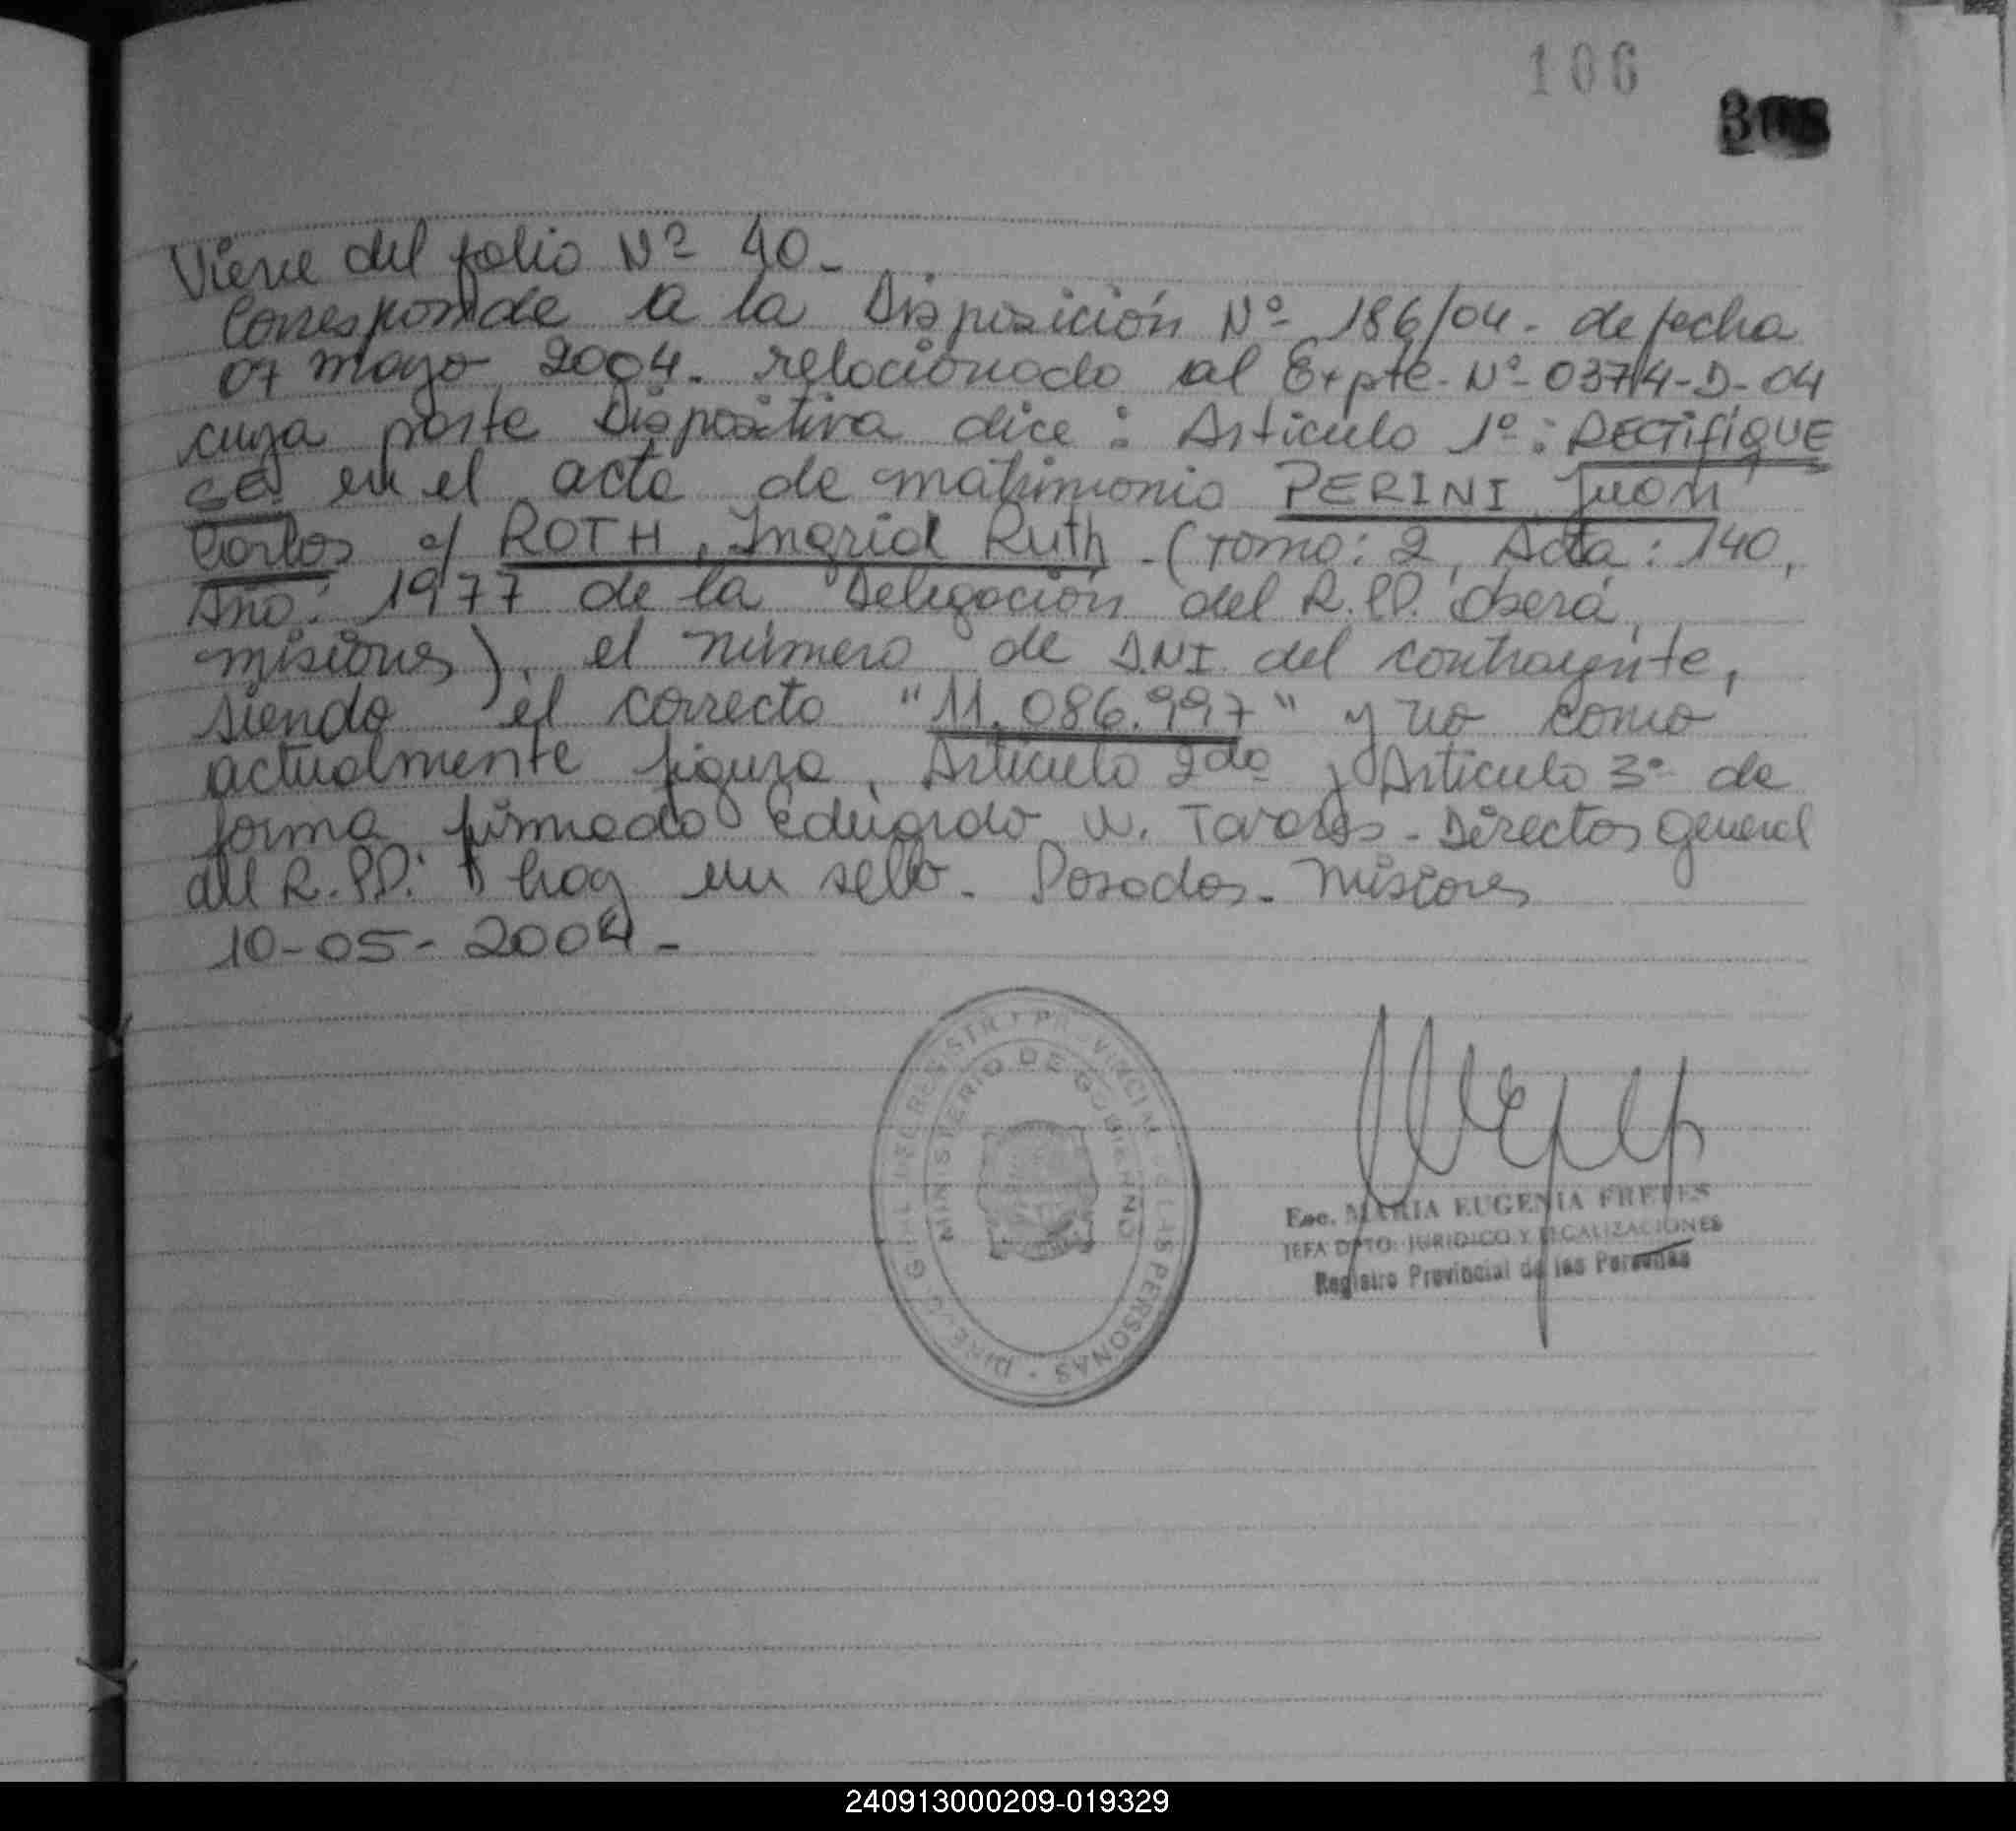 106
308
Viene del folio Nº 40-
Corresponde a la Disposición Nº 186/04. de fecha
07 mayo 2004. relacionado al Expte. Nº 0374-D-04
cuya parte Dispositiva dice: Articulo 1º: RECTIFIQUE
SE: en el acta de matrimonio PERINI Juan
Carlos c/ ROTH, Ingrid Ruth - (Tomo: 2, Acta: 140,
Año: 1977 de la Delegación del R.PP. Oberá,
misiones), el número de D.N.I. del contrayente,
siendo el correcto "11.086.997" y no como
actualmente figura. Articulo 2do y Articulo 3º de
forma firmado Eduardo W. Tavares - Director general
del R.PP. hay un sello - Posadas - misiones
10-05-2004-
DIRECC GRAL DEL REGISTRO PROVINCIAL DE LAS PERSONAS
MINISTERIO DE GOBIERNO
Esc. MARIA EUGENIA FRETES
JEFA DPTO. JURIDICO Y LEGALIZACIONES
Registro Provincial de las Personas
240913000209-019329